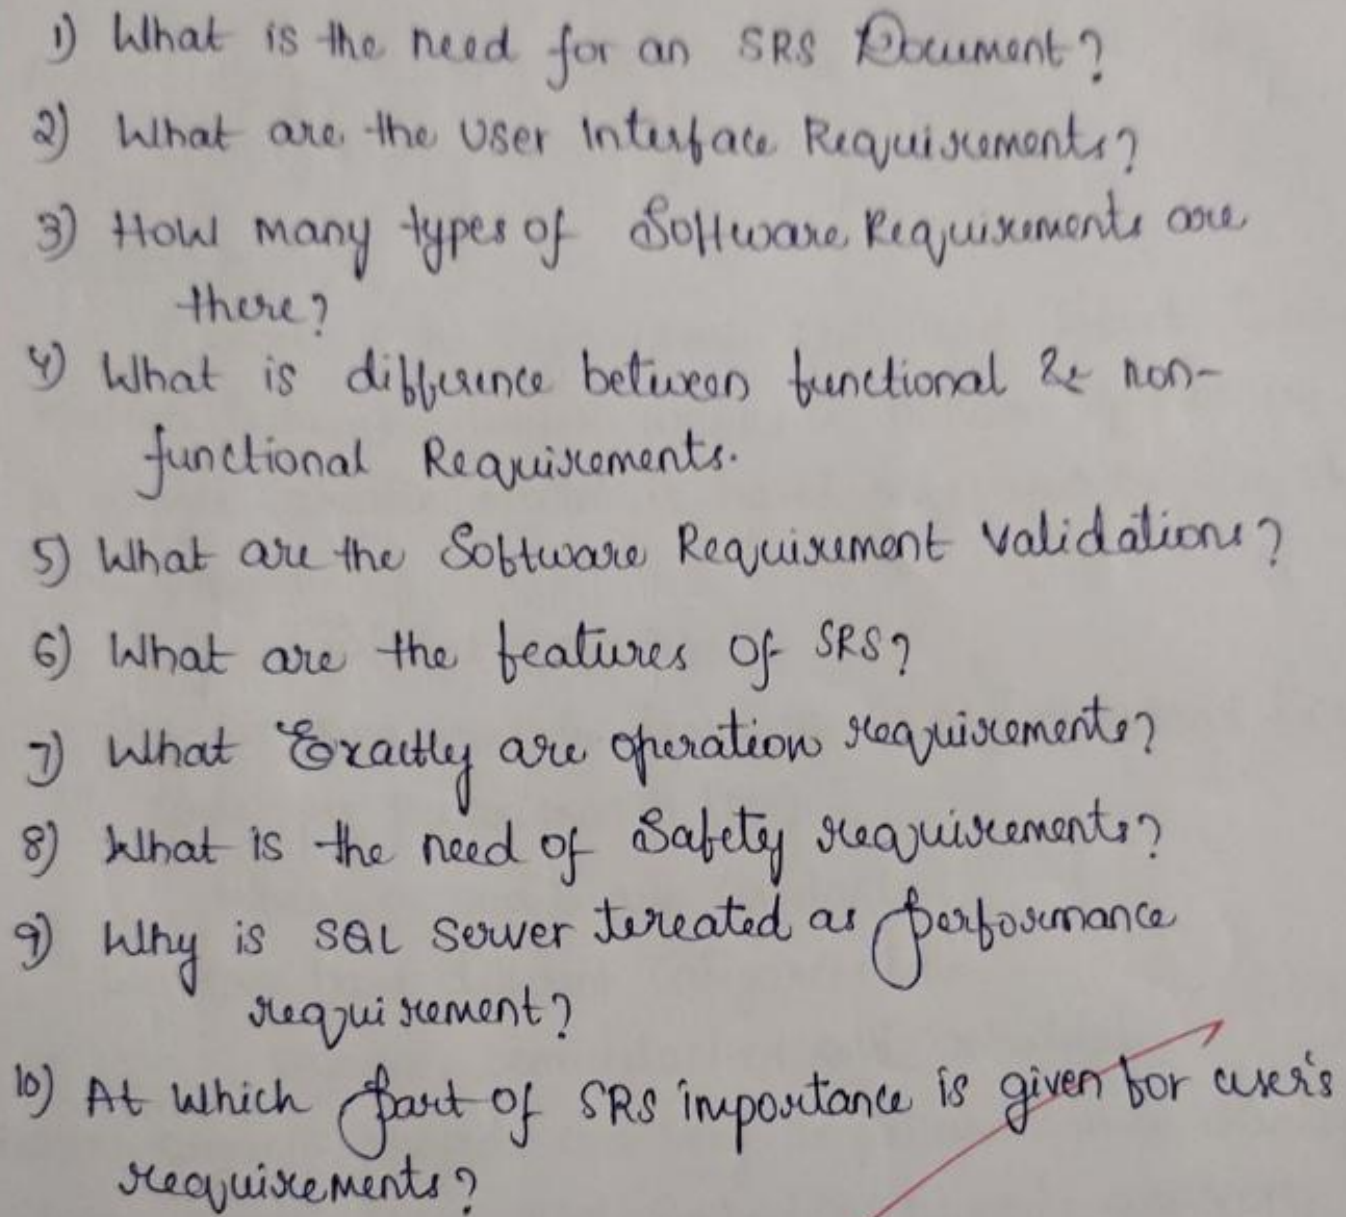 1) What is the need for an SRS Document?
2) What are the User Interface Requirements?
3) How many types of Software Requirements are
there?
4) What is difference between functional & non-
functional Requirements.
5) What are the Software Requirement Validations?
6) What are the features of SRS?
7) What Exactly are operation requirements?
8) What is the need of Safety requirements?
9) Why is SQL Server tereated as performance
requirement?
10) At which part of SRS importance is given for user's
requirements?